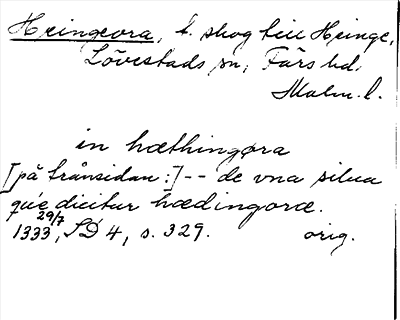 Heingeora, t. skog till Heinge,
Lövestads sn, Färs hd.
Malm. l.
in hæthingøra
[på frånsidan:] -- de vna silua
que dicitur hædingoræ.
29/7
1333, SD 4, s. 329. orig.